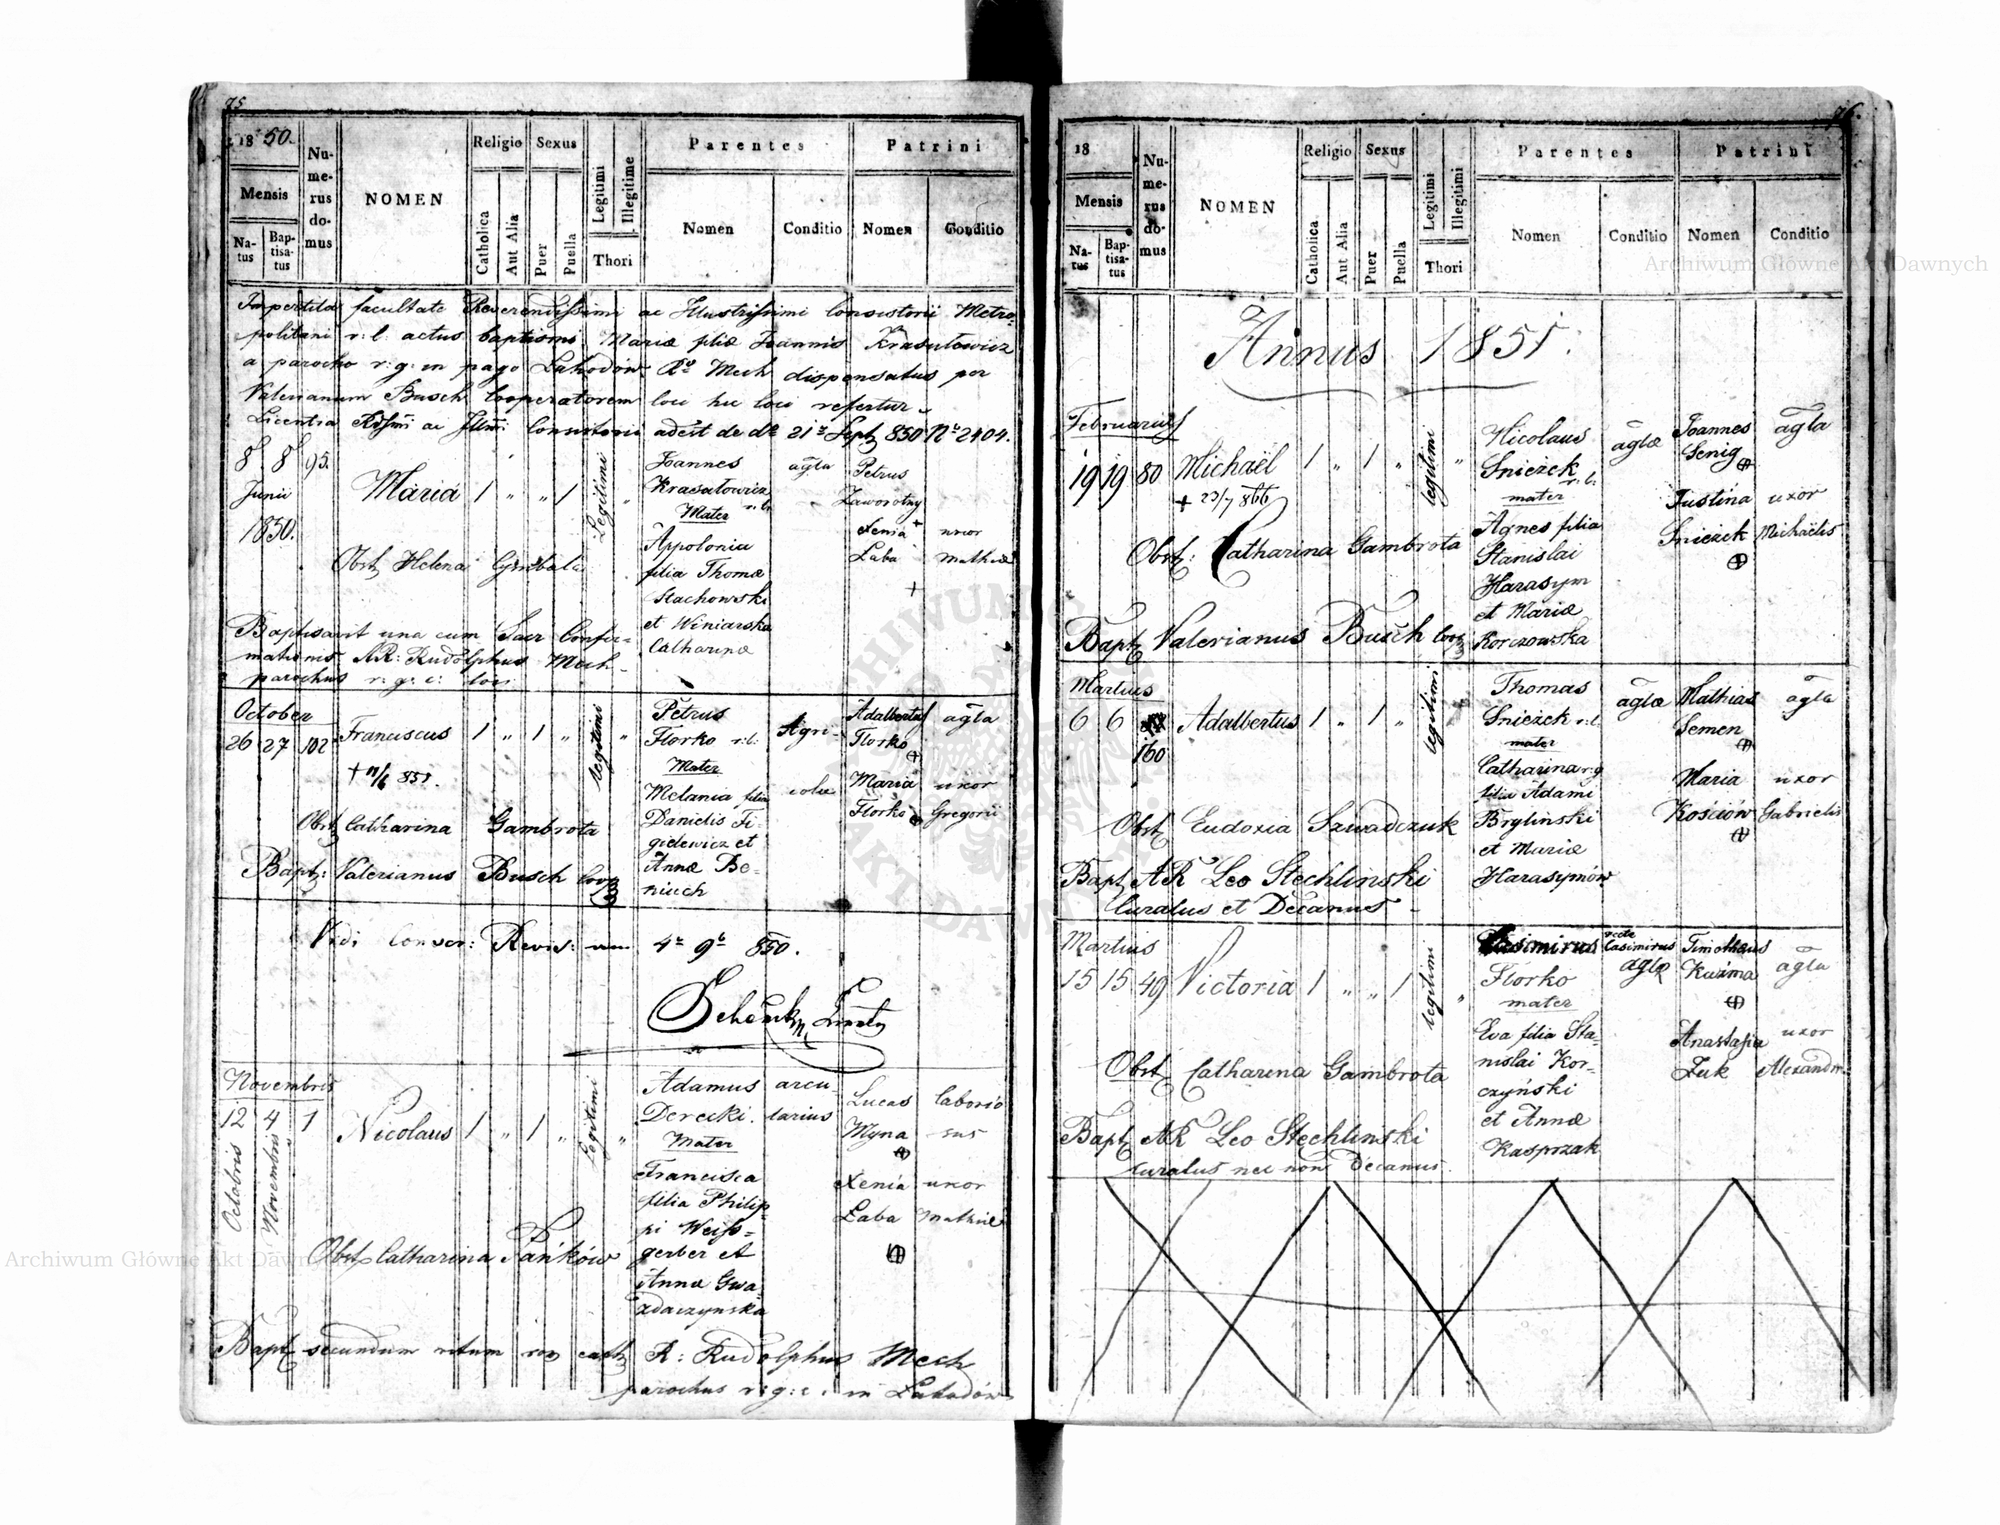 75
18 50.
Mensis
Na-
tus
Bap-
tisa-
tus
Nu-
me-
rus
do-
mus
NOMEN
Religio
Catholica
Aut Alia
Sexus
Puer
Puella
Legitimi
Illegitime
Thori
Parentes
Nomen
Conditio
Patrini
Nomen
Conditio
Impertita facultate Reverendissimi ac Illustrissimi Consistorii Metro-
politani r: l: actus baptismi Mariæ filiæ Joannis Krasutowicz
a parocho r: g: in pago Lahodów Mech dispensatus per
Valerianum Busch Cooperatorem loci hu loci refertur
Licentia ac Consistorii adest de dº 21 Sept 850 Nº 2404.
8 8 95.
Junii
1850.
Maria 1 " " 1 Legitimi "
Joannes
Krasutowicz
r. l.
Mater
Appolonia
filia Thomæ
Stachowski
et Winiarska
Catharinæ
agla
Petrus
Zaworotny
Xenia
Laba
uxor
Mathiæ
Obst Helena Cymbala
Baptisavit una cum Sacr Confir-
mationis AR: Rudolphus Mech
parochus r: g: c: loci
October
26 27 102
Franciscus 1 " 1 " legitimi "
Petrus
Florko r: l:
Mater
Melania filia
Danielis Fi-
gidewicz et
Annæ Be-
niuch
Agri-
colæ
Adalbertus
Florko
Maria
Florko
agla
uxor
Gregorii
Obst Catharina Gambrota
Bapt: Valerianus Busch Coop
Vidi Conscr: Revis: 4 9b 850.
Novembris
12 4 1
Octobris
Novembris
Nicolaus 1 " 1 " Legitimi "
Adamus
Derecki.
Mater
Francisca
filia Philip-
pi Weiss-
gerber et
Annæ Gwa-
zdaczynska
arcu-
larius
Lucas
Myna
Xenia
Laba
laborio
sus
uxor
Mathiæ
Obst Catharina Pańków
Bapt secundum ritum rom cath R: Rudolphus Mech
parochus r: g: c: in Lahodów
76.
18
Mensis
Na-
tus
Bap-
tisa-
tus
Nu-
me-
rus
do-
mus
NOMEN
Religio
Catholica
Aut Alia
Sexus
Puer
Puella
Legitimi
Illegitimi
Thori
Parentes
Nomen
Conditio
Patrini
Nomen
Conditio
Annus 1851.
Februarius
19 19 80 Michaël 1 " 1 " legitimi "
+ 23/7 866
Nicolaus
Sniezek
r. l.
mater
Agnes filia
Stanislai
Harasym
et Mariæ
Korczowska
aglæ
Joannes
Senig
Justina
Sniezek
agla
uxor
Michaëlis
Obst: Catharina Gambrota
Bapt Valerianus Busch Coop
Martius
6 6
160
Adalbertus 1 " 1 " legitimi
Thomas
Sniezek r: l.
mater
Catharina r: g
filia Adami
Brylinski
et Mariæ
Harasymów
aglæ
Mathias
Semen
Maria
Kościów
agla
uxor
Gabrielis
Obst Eudoxia Szwadczuk
Bapt AR Leo Stechlinski
Curatus et Decanus
Martius
15 15 49 Victoria 1 " " 1 legitimi "
Casimirus
recte
Casimirus
Florko
mater
Eva filia Sta-
nislai Kor-
czyński
et Annæ
Kasprzak
aglæ
Timotheus
Kuzma
Anastasia
Zuk
agla
uxor
Alexandri
Obst Catharina Gambrota
Bapt AR Leo Stechlinski
curatus nec non Decanus.
Archiwum Główne Akt Dawnych
Archiwum Główne Akt Dawnych